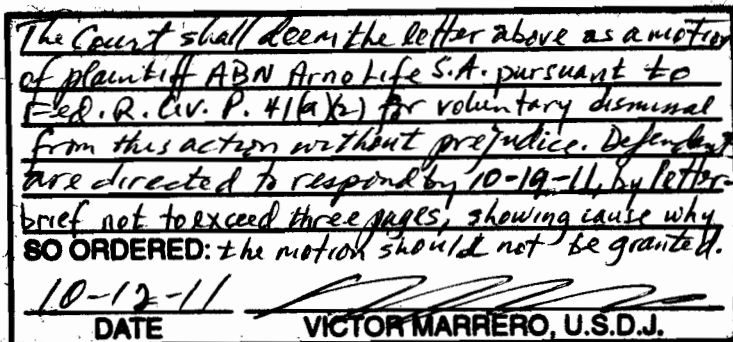 The Court shall deem the letter above as a motion
of plaintiff ABN Amro Life S.A. pursuant to
Fed. R. Civ. P. 41(a)(2) for voluntary dismissal
from this action without prejudice. Defendants
are directed to respond by 10-19-11, by letter-
brief not to exceed three pages, showing cause why
SO ORDERED: the motion should not be granted.
10-12-11
DATE VICTOR MARRERO, U.S.D.J.